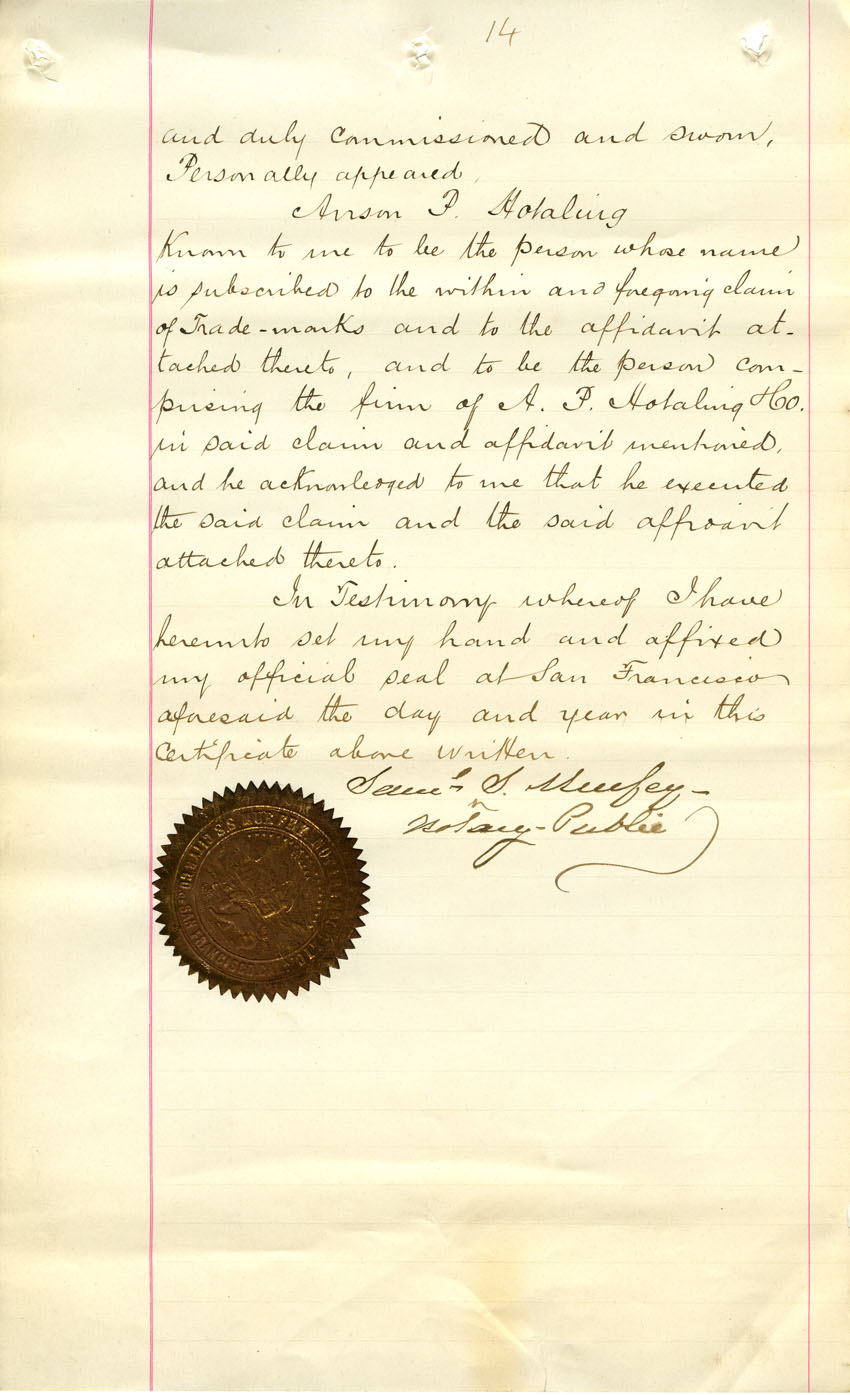 14
and duly commissioned and sworn,
Personally appeared,
Anson P. Hotaling
Known to me to be the person whose name
is subscribed to the within and foregoing claim
of Trade-marks and to the affidavit at-
tached thereto, and to be the person com-
prising the firm of A. P. Hotaling & Co.
in said claim and affidavit mentioned,
and he acknowledged to me that he executed
the said claim and the said affidavit
attached thereto.
In Testimony whereof I have
hereunto set my hand and affixed
my official seal at San Francisco
aforesaid the day and year in this
Certificate above written.
Saml S. Murfey
Notary Public
S.S. MURFEY NOTARY
SAN FRANCISCO